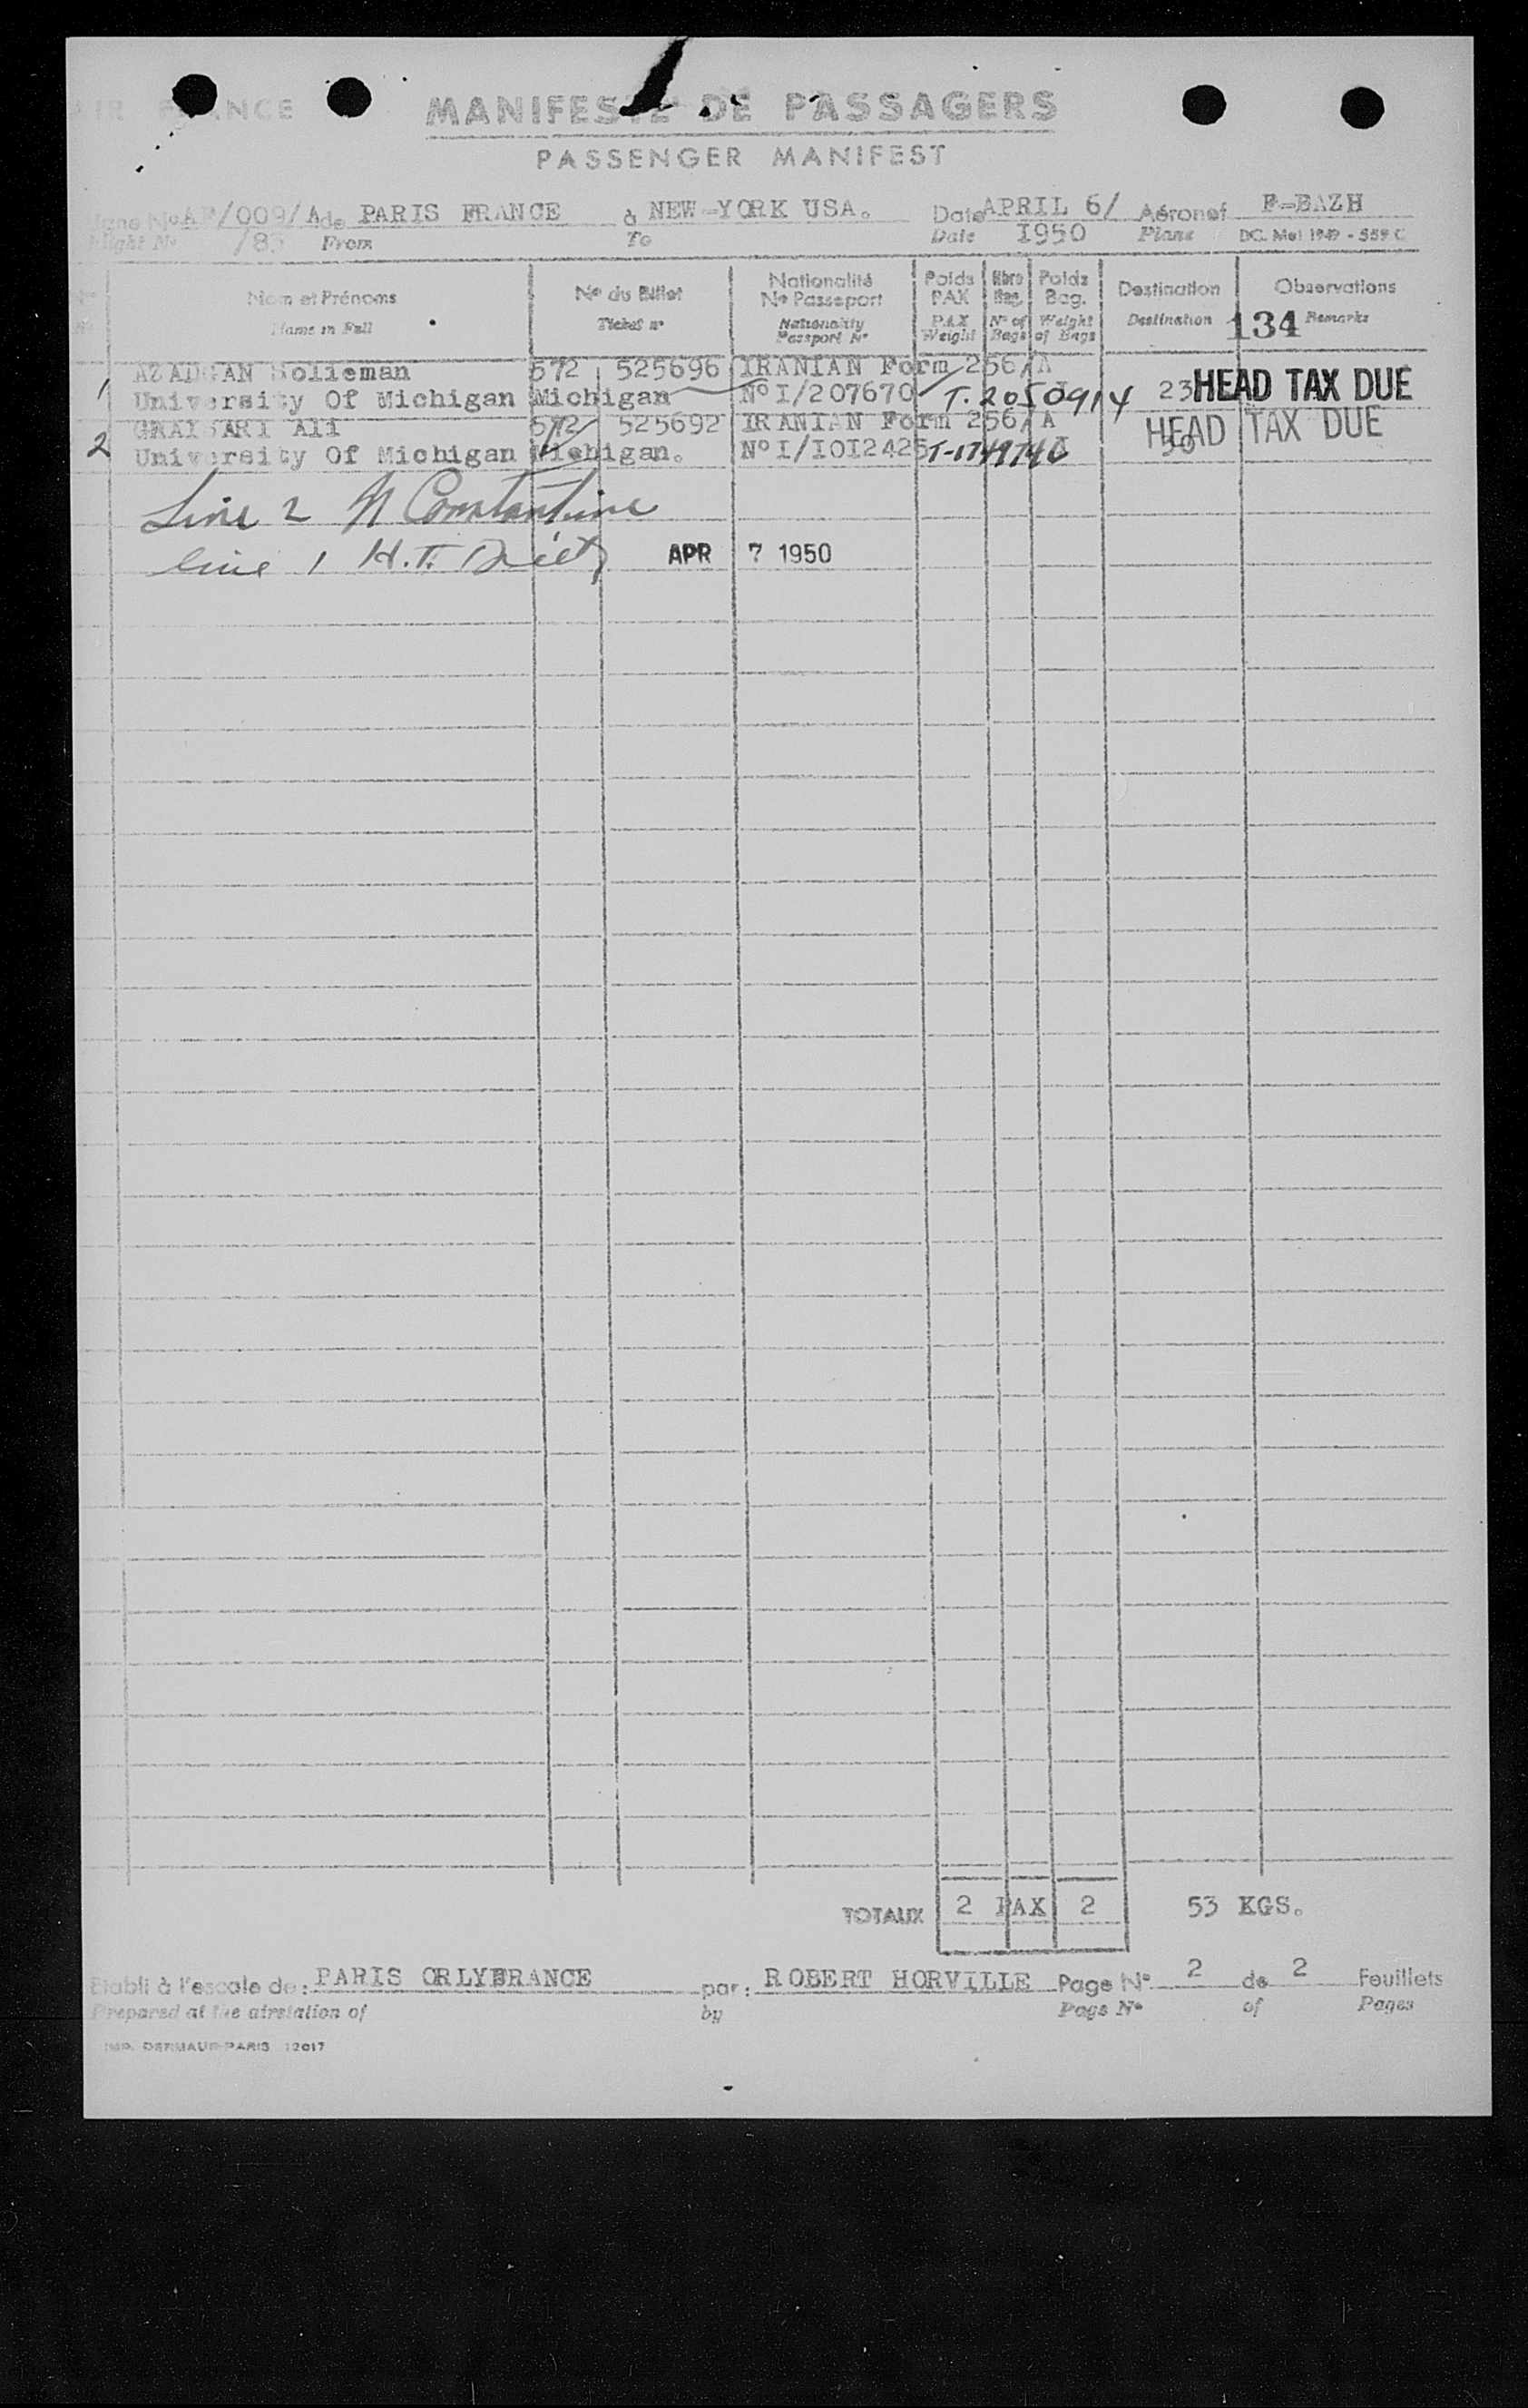 AIR FRANCE
MANIFESTE DE PASSAGERS
PASSENGER MANIFEST
Ligne No AF/009/A de PARIS FRANCE à NEW-YORK USA. Date APRIL 6/ Aéronef F-BAZH
Flight No From To Date 1950 Plane DC. Mel 1949 - 559 C
Nom et Prénoms
Name in Full
No du Billet
Ticket no
Nationalité
No Passeport
Nationality
Passport No
Poids
PAX
PAX
Weight
Nbre
Bag.
No of
Bags
Poids
Bag.
Weight
of Bags
Destination
Destination
Observations
Remarks
134
1 AZADGAN Solieman 572 525696 IRANIAN Form 256/A
University Of Michigan Michigan No I/207670 T.2050914 23 HEAD TAX DUE
2 Ali 572 525692 IRANIAN Form 256/A HEAD TAX DUE
University Of Michigan Michigan. No I/IOI2425 30
Line 2 N Constantine
line 1 H.T. APR 7 1950
TOTAUX 2 PAX 2 53 KGS.
Etabli à l'escale de: PARIS ORLY FRANCE par: ROBERT HORVILLE Page No 2 de 2 Feuillets
Prepared at the airstation of by Page No of Pages
IMP. DERMAUF-PARIS 12017